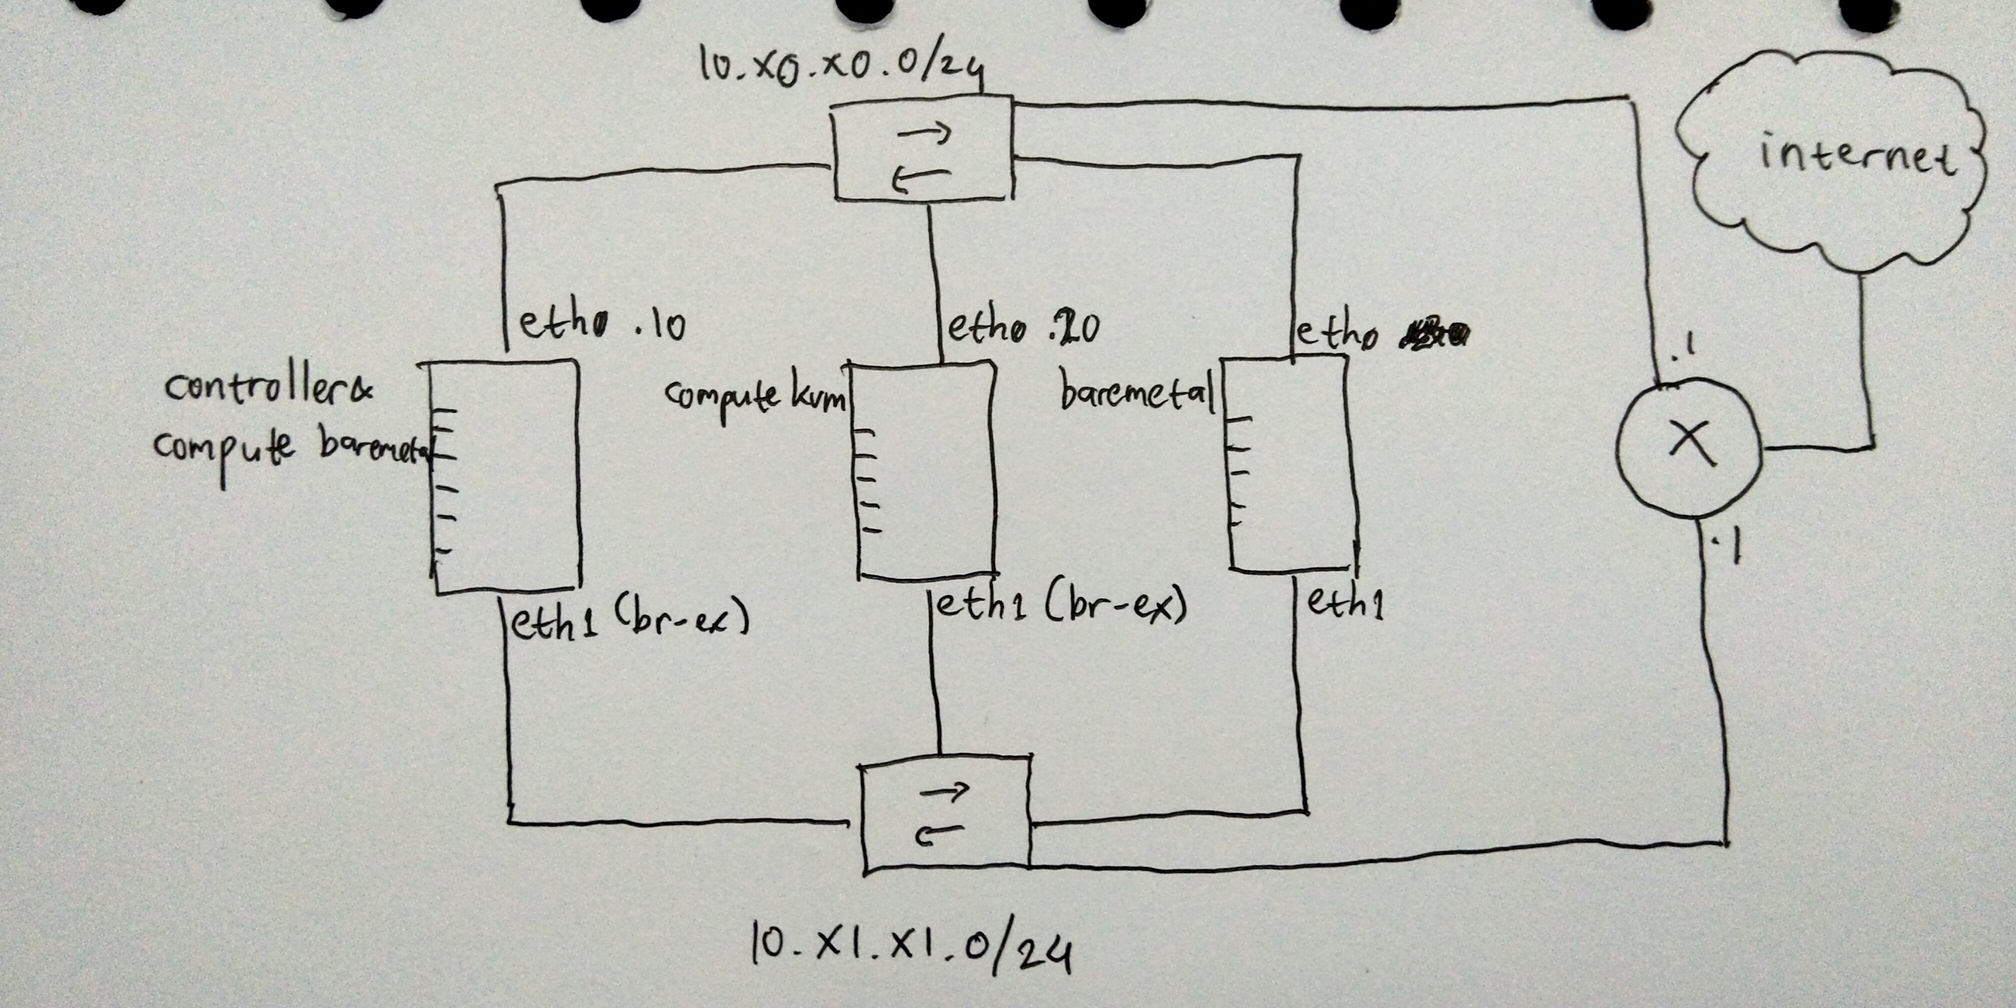 10.x0.x0.0/24
internet
eth0 .10
eth0 .20
eth0
.1
controller&
compute baremetal
compute kvm
baremetal
X
.1
eth1 (br-ex)
eth1 (br-ex)
eth1
10.x1.x1.0/24